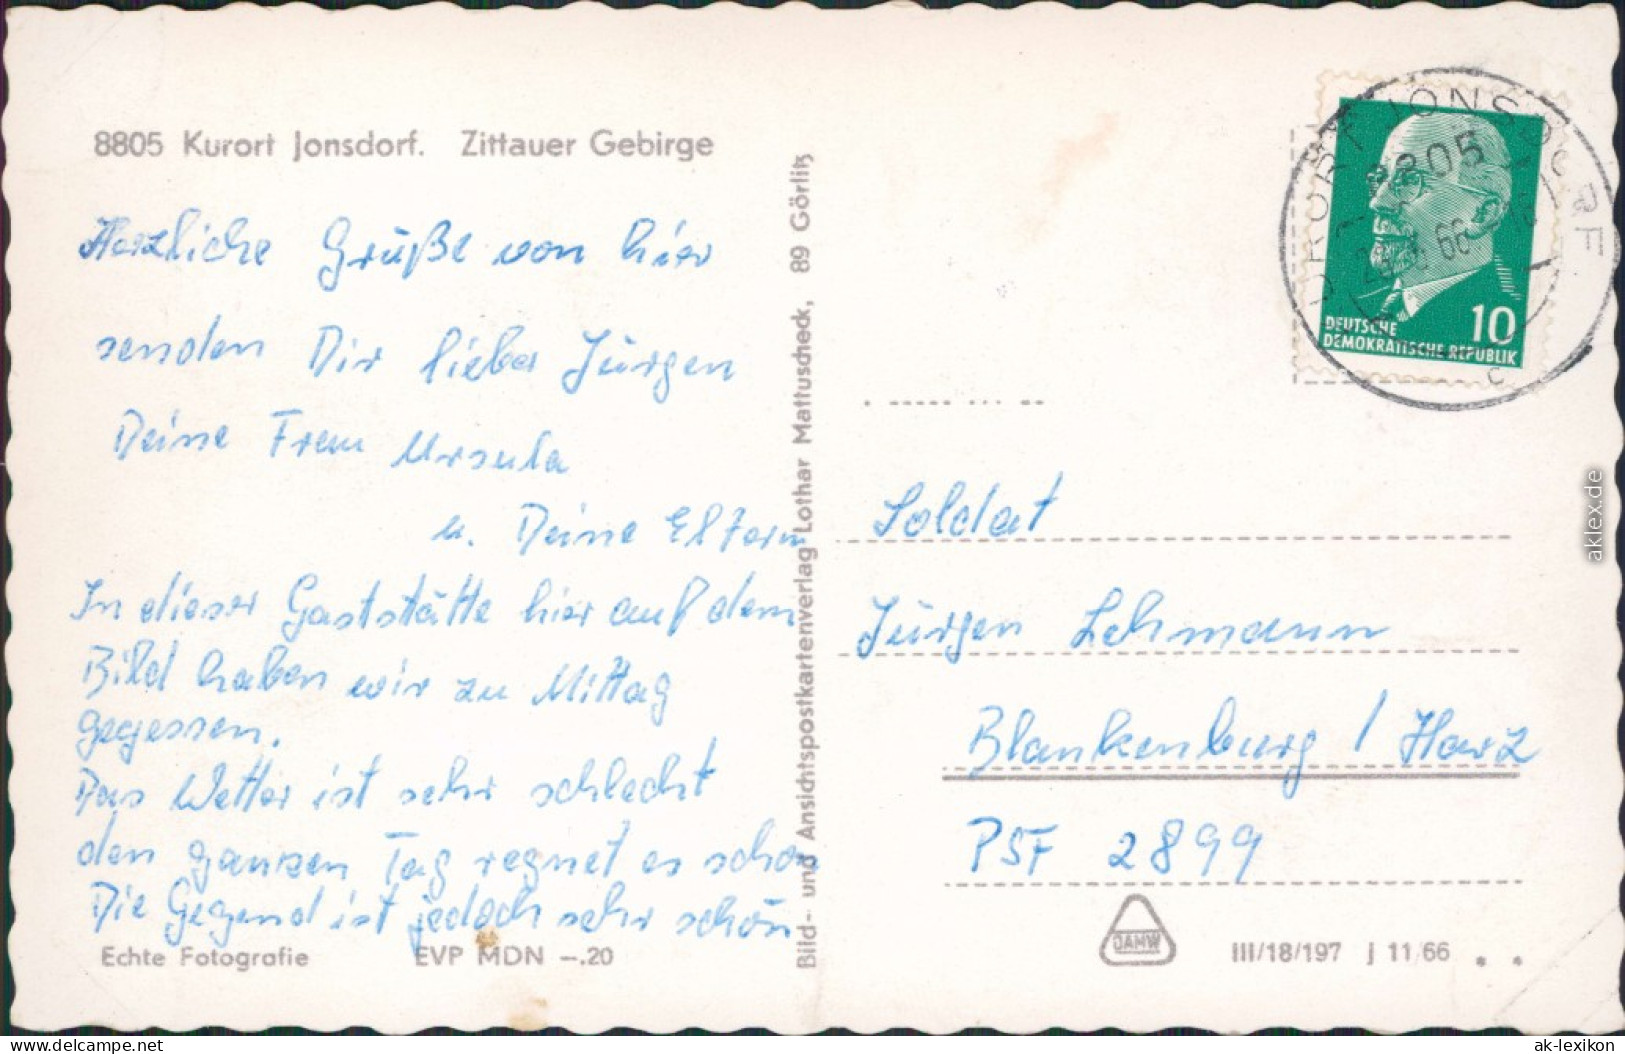 8805 Kurort Jonsdorf. Zittauer Gebirge
Herzliche Grüße von hier
senden Dir lieber Jürgen
Deine Frau Ursula
u. Deine Eltern
In dieser Gaststätte hier auf dem
Bild haben wir zu Mittag
gegessen.
Das Wetter ist sehr schlecht
den ganzen Tag regnet es schon
Die Gegend ist jedoch sehr schön
Echte Fotografie EVP MDN -.20
Bild- und Ansichtspostkartenverlag Lothar Mattuscheck, 89 Görlitz
KURORT JONSDORF
8805
66
c
10
DEUTSCHE
DEMOKRATISCHE REPUBLIK
Soldat
Jürgen Lehmann
Blankenburg / Harz
PSF 2899
DAMW
III/18/197 J 11/66
aklex.de
www.delcampe.net
ak-lexikon